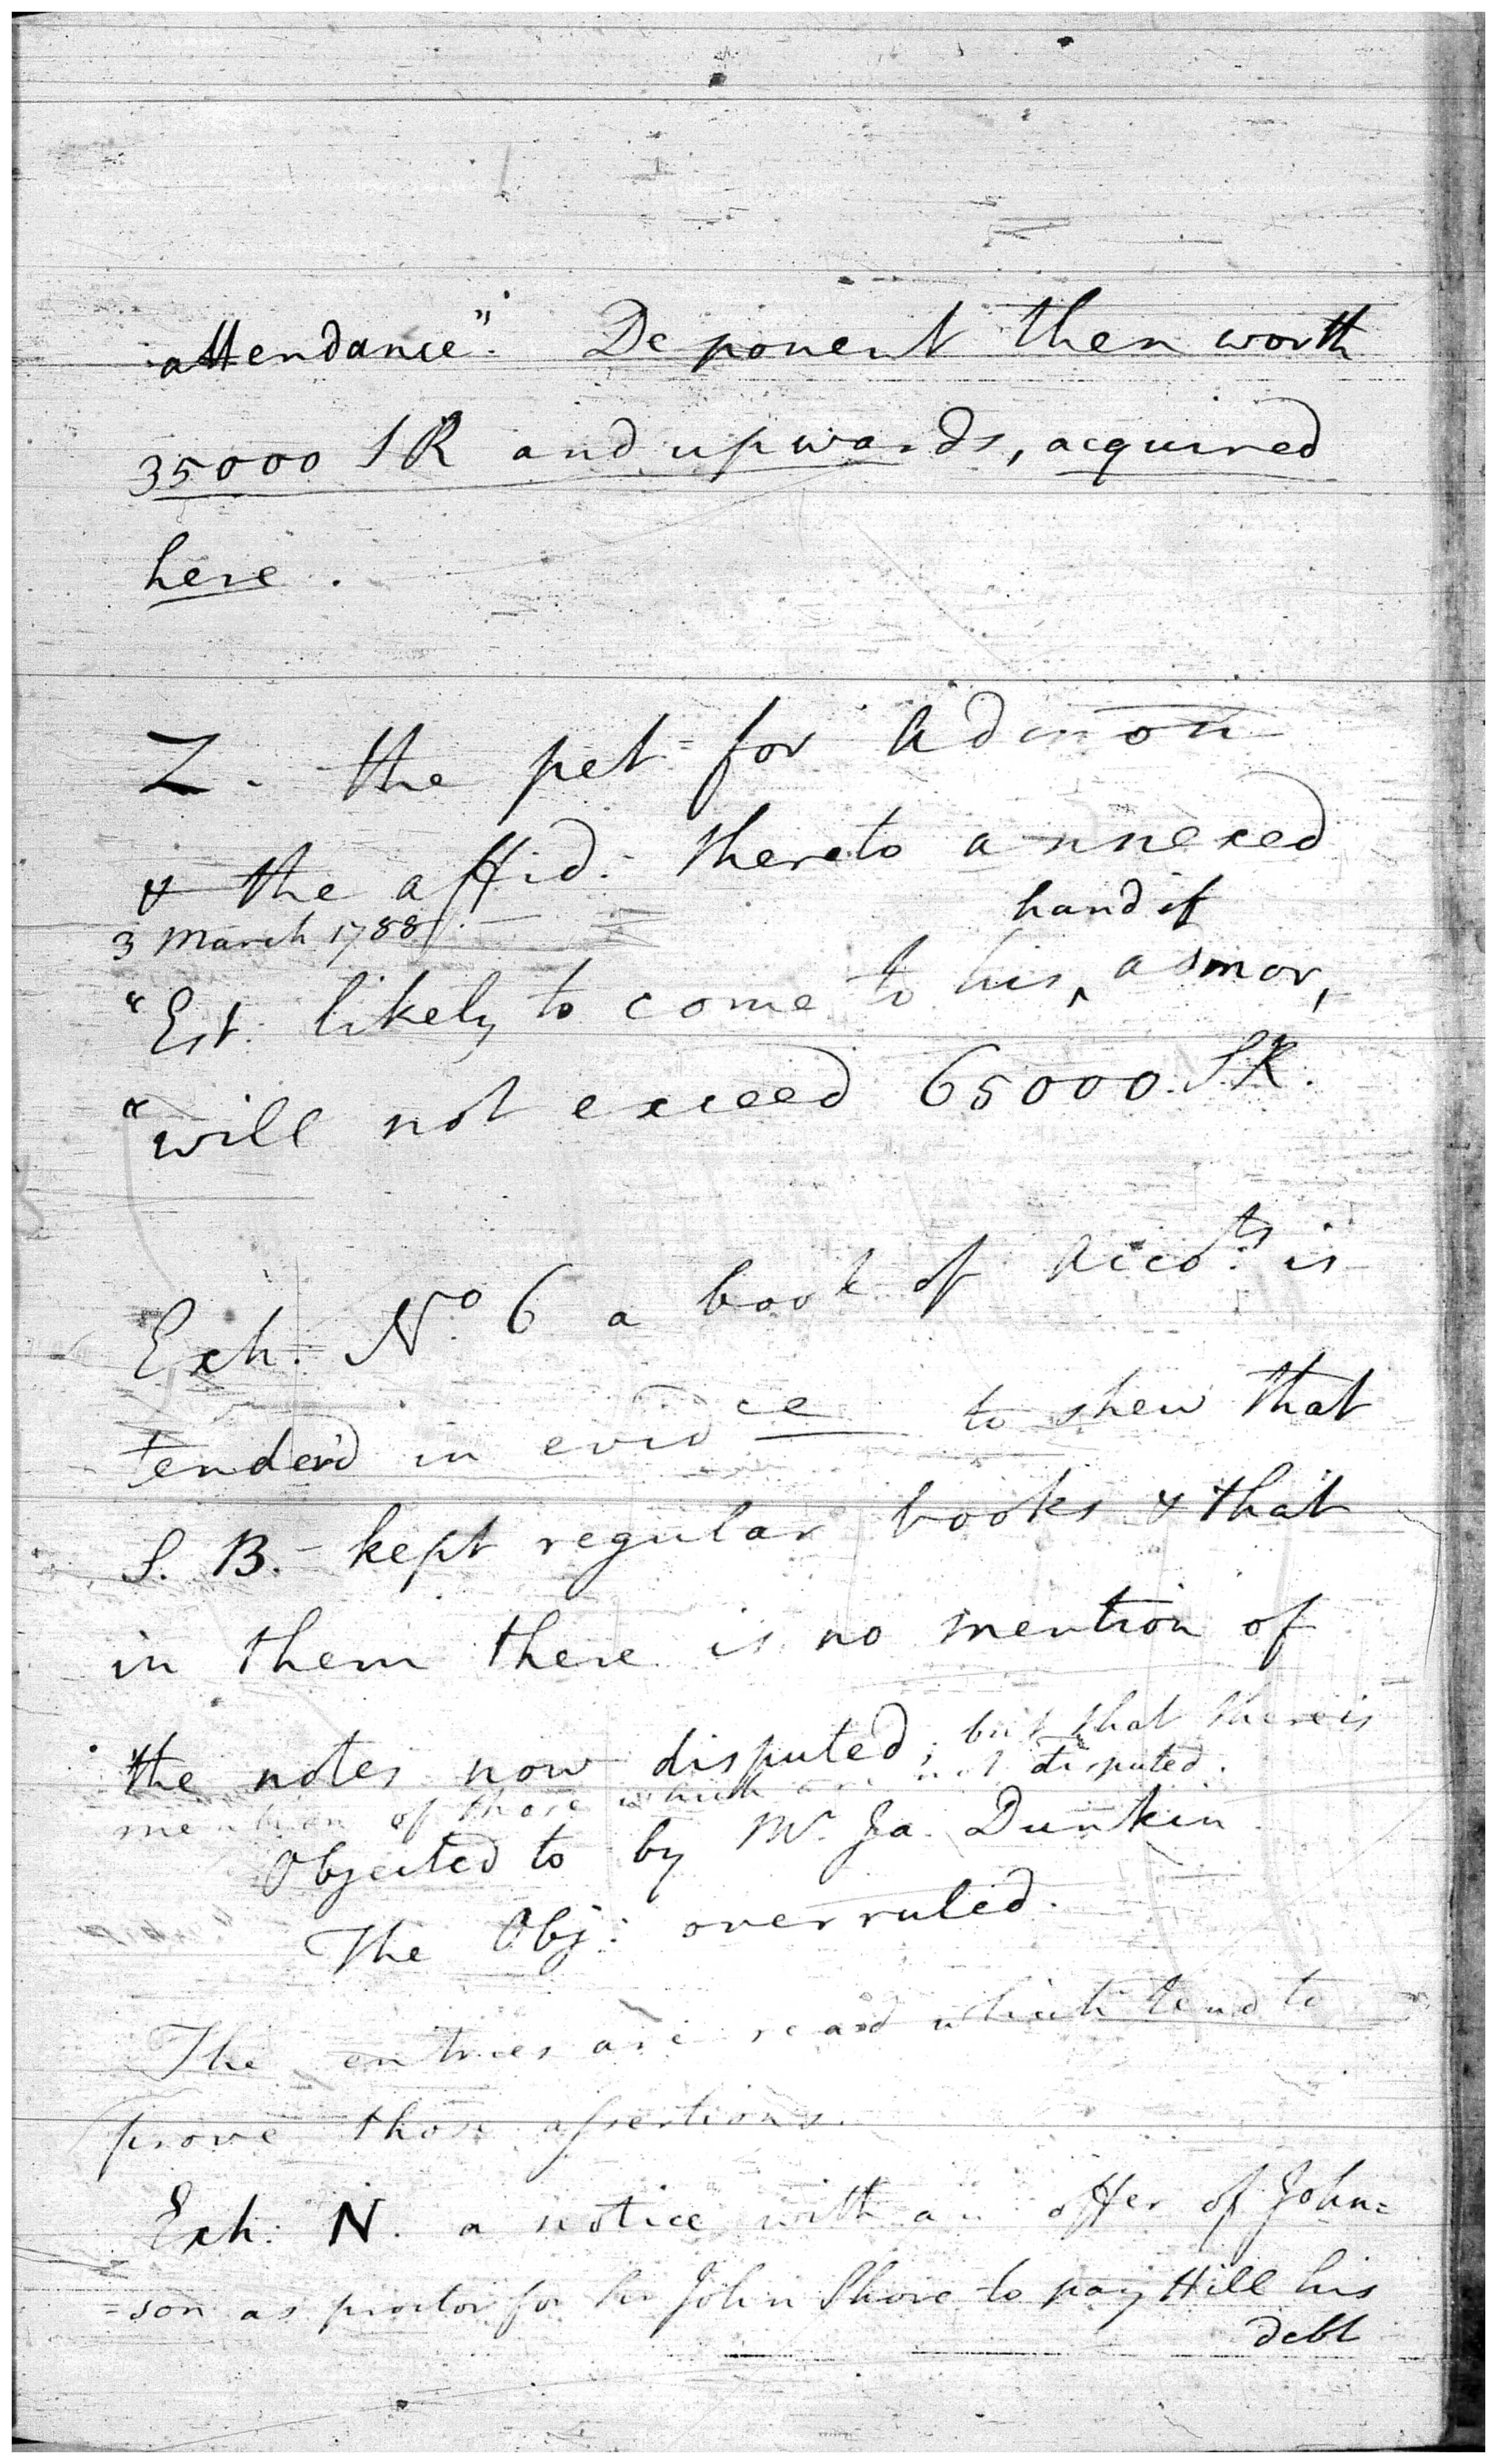 attendance". Deponent then worth
35000 SR and upwards, acquired
here.
Z. the pet: for Admon
& the affid: thereto annexed
3 March 1788.
hand if
"Est: likely to come to his ^ admor,
"will not exceed 65000. SR.
Exh: No. 6 a book of Accots. is
tender'd in evidce to shew that
S. B. kept regular books & that
in them there is no mention of
the notes now disputed; but that there is
mention of those which are not disputed.
Objected to by Mr. Ja. Dunkin
The Obj: overruled.
The entries are read which tend to
prove those assertions.
Exh: N. a notice with an offer of John=
=son as proctor for Sir John Shore to pay Hill his
debt